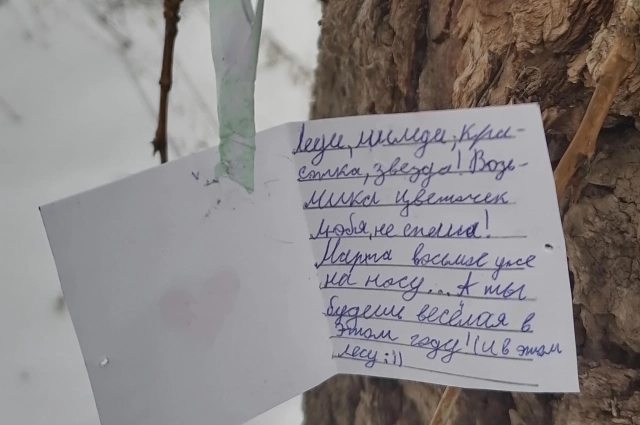 Леди, милгда, Кра-
сотка, звезда! Возь-
мика цветочек
любя, не спеша!
Марта восьмое уже
на носу... А ты
будешь весёлая в
этом году! (И в этом
лесу :))